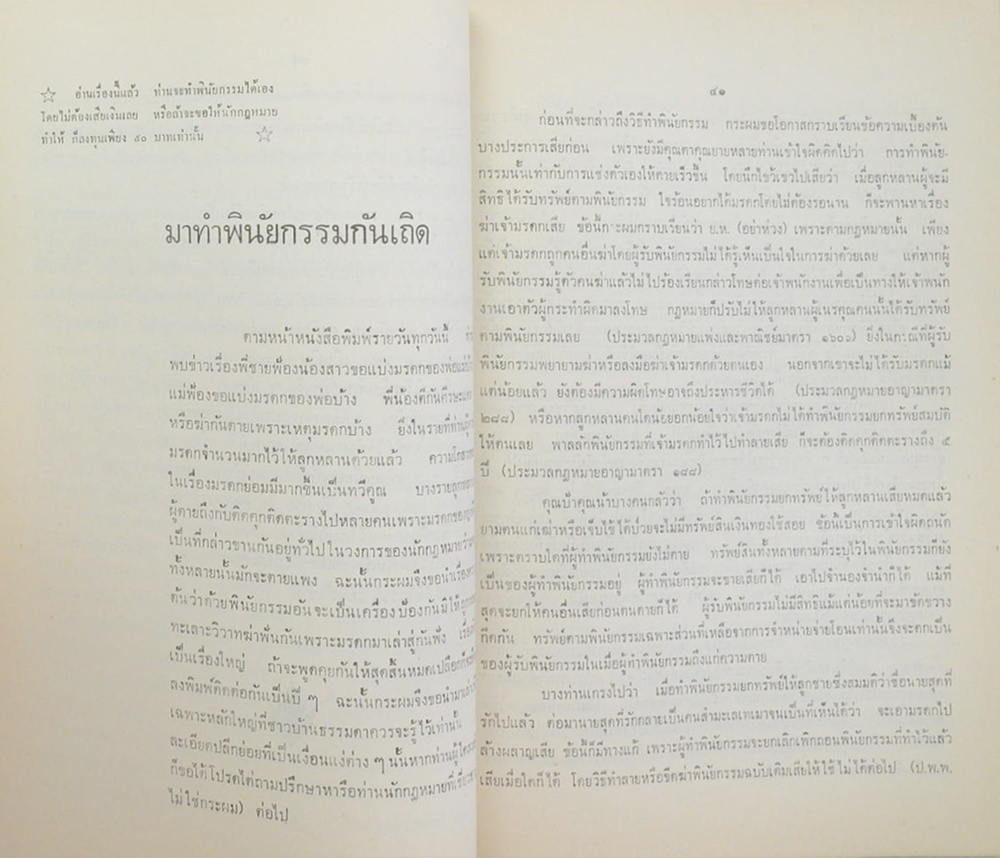 ☆ อ่านเรื่องนี้แล้ว ท่านจะทำพินัยกรรมได้เอง
โดยไม่ต้องเสียเงินเลย หรือถ้าจะขอให้นักกฎหมาย
ทำให้ ก็ลงทุนเพียง ๕๐ บาทเท่านั้น ☆
มาทำพินัยกรรมกันเถิด
ตามหน้าหนังสือพิมพ์รายวันทุกวันนี้
พบข่าวเรื่องพี่ชายฟ้องน้องสาวขอแบ่งมรดกของพ่อแม่บ้าง
แม่ฟ้องขอแบ่งมรดกของพ่อบ้าง พี่น้องตีกันศีรษะ
หรือฆ่ากันตายเพราะเหตุมรดกบ้าง ยิ่งในรายที่ท่านผู้
มรดกจำนวนมากไว้ให้ลูกหลานด้วยแล้ว ความ
ในเรื่องมรดกย่อมมีมากขึ้นเป็นทวีคูณ บางราย
ผู้ตายถึงกับติดคุกติดตะรางไปหลายคนเพราะมรดกของ
เป็นที่กล่าวขานกันอยู่ทั่วไปในวงการของนักกฎหมาย
ทั้งหลายนั้นมักจะตายแพง ฉะนั้นกระผมจึงขอนำเรื่อง
ต้นว่าด้วยพินัยกรรมอันจะเป็นเครื่องป้องกันมิให้
ทะเลาะวิวาทฆ่าฟันกันเพราะมรดกมาเล่าสู่กันฟัง
เป็นเรื่องใหญ่ ถ้าจะพูดคุยกันให้สุดสิ้นหมดเปลือก
ลงพิมพ์ติดต่อกันเป็นปี ๆ ฉะนั้นกระผมจึงขอนำมา
เฉพาะหลักใหญ่ที่ชาวบ้านธรรมดาควรจะรู้ไว้เท่านั้น
ละเอียดปลีกย่อยที่เป็นเงื่อนแง่ต่าง ๆ นั้นหากท่านผู้ใด
ก็ขอได้โปรดไต่ถามปรึกษาหารือท่านนักกฎหมายที่
ไม่ใช่กระผม) ต่อไป
๔๑
ก่อนที่จะกล่าวถึงวิธีทำพินัยกรรม กระผมขอโอกาสกราบเรียนข้อความเบื้องต้น
บางประการเสียก่อน เพราะยังมีคุณตาคุณยายหลายท่านเข้าใจผิดคิดไปว่า การทำพินัย-
กรรมนั้นเท่ากับการแช่งตัวเองให้ตายเร็วขึ้น โดยนึกไขว้เขวไปเสียว่า เมื่อลูกหลานผู้จะมี
สิทธิได้รับทรัพย์ตามพินัยกรรม ใจร้อนอยากได้มรดกโดยไม่ต้องรอนาน ก็จะพานหาเรื่อง
ฆ่าเจ้ามรดกเสีย ข้อนี้กระผมกราบเรียนว่า ย.ห. (อย่าห่วง) เพราะตามกฎหมายนั้น เพียง
แต่เจ้ามรดกถูกคนอื่นฆ่าโดยผู้รับพินัยกรรมไม่ได้รู้เห็นเป็นใจในการฆ่าด้วยเลย แต่หากผู้
รับพินัยกรรมรู้ตัวคนฆ่าแล้วไม่ไปร้องเรียนกล่าวโทษต่อเจ้าพนักงานเพื่อเป็นทางให้เจ้าพนัก
งานเอาตัวผู้กระทำผิดมาลงโทษ กฎหมายก็ปรับไม่ให้ลูกหลานผู้เนรคุณคนนั้นได้รับทรัพย์
ตามพินัยกรรมเลย (ประมวลกฎหมายแพ่งและพาณิชย์มาตรา ๑๖๐๖) ยิ่งในกรณีที่ผู้รับ
พินัยกรรมพยายามฆ่าหรือลงมือฆ่าเจ้ามรดกด้วยตนเอง นอกจากเขาจะไม่ได้รับมรดกแม้
แต่น้อยแล้ว ยังต้องมีความผิดโทษอาจถึงประหารชีวิตได้ (ประมวลกฎหมายอาญามาตรา
๒๘๘) หรือหากลูกหลานคนใดน้อยอกน้อยใจว่าเจ้ามรดกไม่ได้ทำพินัยกรรมยกทรัพย์สมบัติ
ให้ตนเลย พาลลักพินัยกรรมที่เจ้ามรดกทำไว้ไปทำลายเสีย ก็จะต้องติดคุกติดตะรางถึง ๕
ปี (ประมวลกฎหมายอาญามาตรา ๑๘๘)
คุณป้าคุณน้าบางคนกลัวว่า ถ้าทำพินัยกรรมยกทรัพย์ให้ลูกหลานเสียหมดแล้ว
ยามตนแก่เฒ่าหรือเจ็บไข้ได้ป่วยจะไม่มีทรัพย์สินเงินทองใช้สอย ข้อนี้เป็นการเข้าใจผิดถนัด
เพราะตราบใดที่ผู้ทำพินัยกรรมยังไม่ตาย ทรัพย์สินทั้งหลายตามที่ระบุไว้ในพินัยกรรมก็ยัง
เป็นของผู้ทำพินัยกรรมอยู่ ผู้ทำพินัยกรรมจะขายเสียก็ได้ เอาไปจำนองจำนำก็ได้ แม้ที่
สุดจะยกให้คนอื่นเสียก่อนตนตายก็ได้ ผู้รับพินัยกรรมไม่มีสิทธิแม้แต่น้อยที่จะมาขัดขวาง
กีดกัน ทรัพย์ตามพินัยกรรมเฉพาะส่วนที่เหลือจากการจำหน่ายจ่ายโอนเท่านั้นจึงจะตกเป็น
ของผู้รับพินัยกรรมในเมื่อผู้ทำพินัยกรรมถึงแก่ความตาย
บางท่านเกรงไปว่า เมื่อทำพินัยกรรมยกทรัพย์ให้ลูกชายซึ่งสมมติว่าชื่อนายสุดที่
รักไปแล้ว ต่อมานายสุดที่รักกลายเป็นคนสำมะเลเทเมาจนเป็นที่เห็นได้ว่า จะเอามรดกไป
ล้างผลาญเสีย ข้อนี้ก็มีทางแก้ เพราะผู้ทำพินัยกรรมจะยกเลิกเพิกถอนพินัยกรรมที่ทำไว้แล้ว
เสียเมื่อใดก็ได้ โดยวิธีทำลายหรือขีดฆ่าพินัยกรรมฉบับเดิมเสียให้ใช้ไม่ได้ต่อไป (ป.พ.พ.